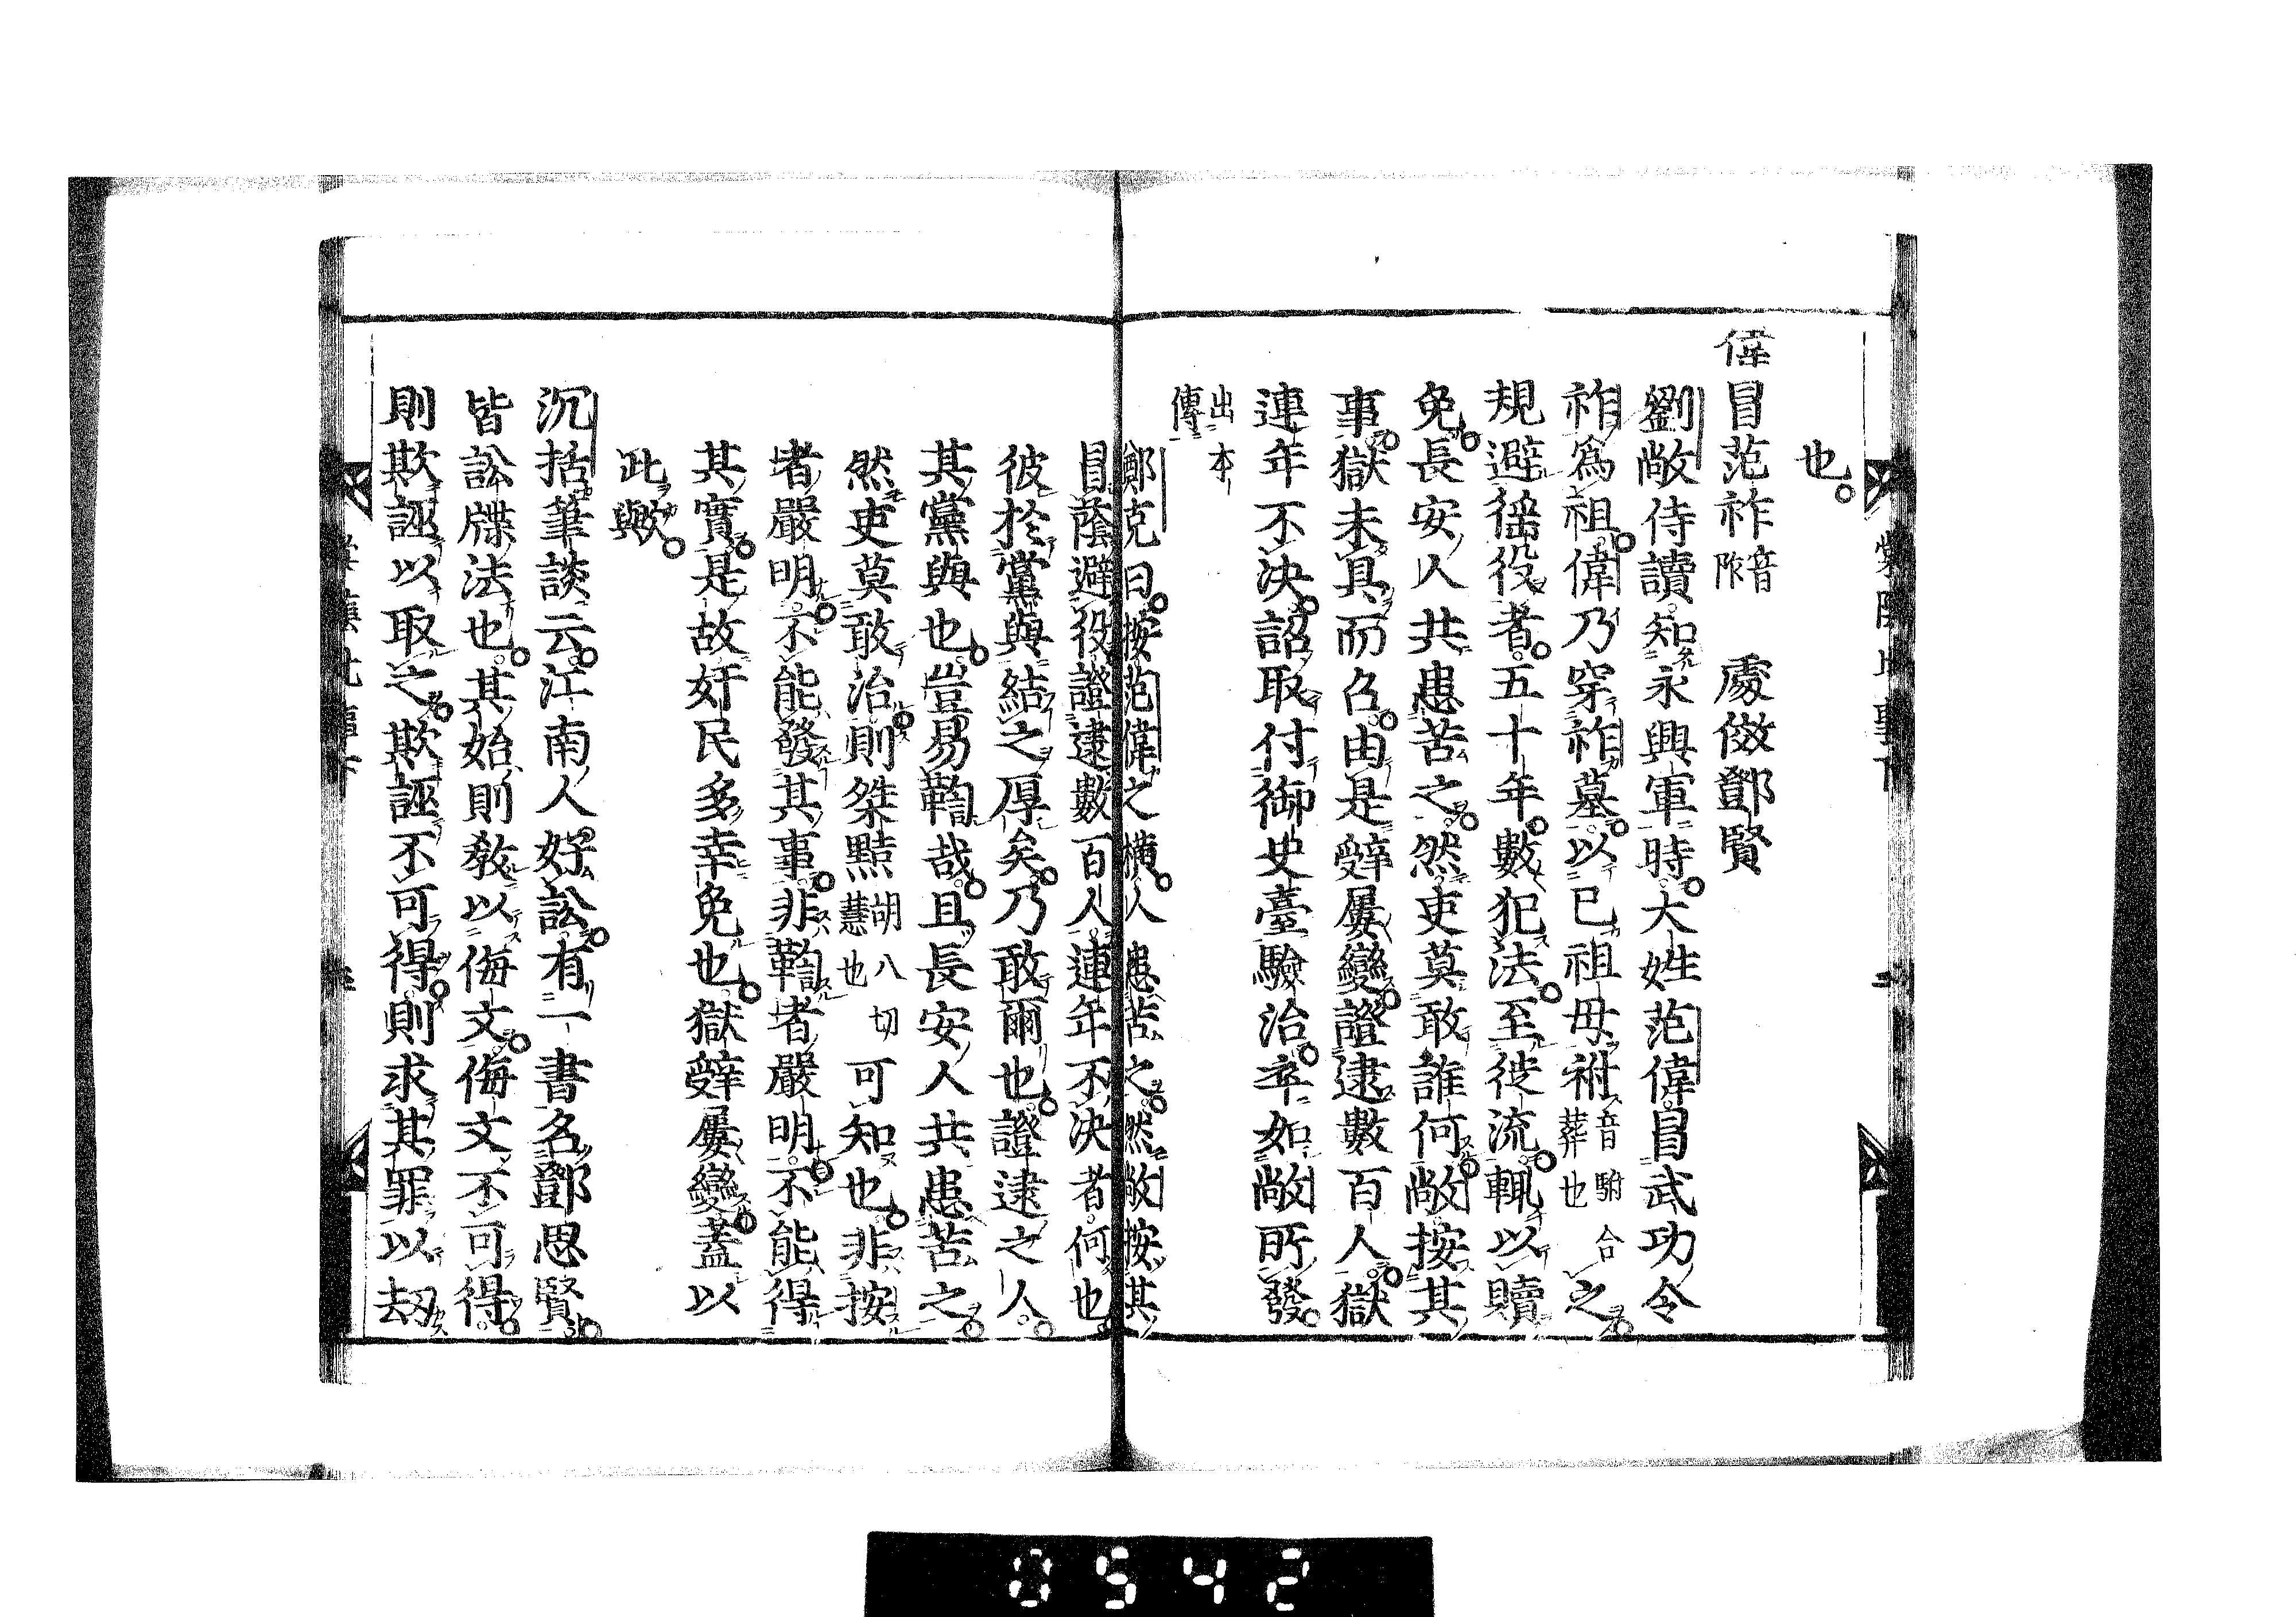 也
偉冒范祚音阼　處俊鄧賢
劉敞侍讀知永興軍時大姓范偉冒武功令
祚爲祖偉乃穿祚墓以已祖母祔音駙合葬也之
規避徭役者五十年數犯法至徙流輒以贖
免長安人共患苦之然吏莫敢誰何敞按其
事獄未具而召由是辤屢變證逮數百人獄
連年不決詔取付御史臺驗治卒如敞所發
出本傳
鄭克曰按范偉之橫人患苦之然敞按其
冒蔭避役證逮數百人連年不決者何也
彼於黨與結之厚矣乃敢爾也證逮之人
其黨與也豈易鞫哉且長安人共患苦之
然吏莫敢治則桀黠胡八切慧也可知也非按
者嚴明不能發其事非鞫者嚴明不能得
其實是故奸民多幸免也獄辤屢變蓋以
此歟
沉括筆談云江南人好訟有一書名鄧思賢
皆訟牒法也其始則教以侮文侮文不可得
則欺誣以取之欺誣不可得則求其罪以刼